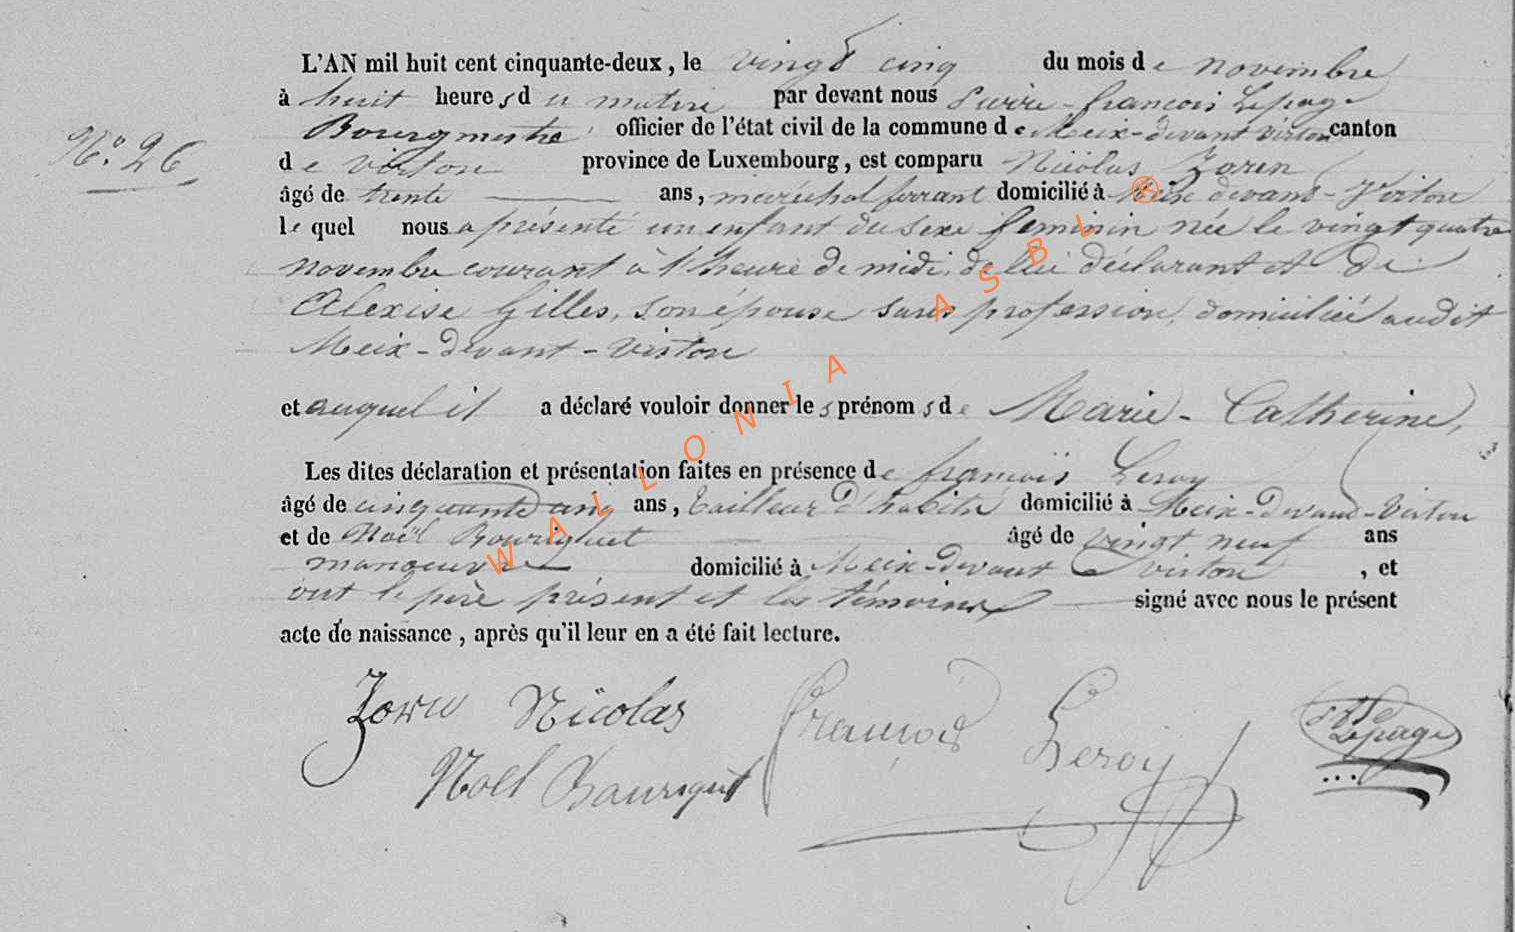 L'AN mil huit cent cinquante-deux, le vingt cinq du mois de novembre
à huit heures du matin par devant nous Pierre-françois Lepage
Bourgmestre officier de l'état civil de la commune de Meix-devant virton canton
N° 26
de virton province de Luxembourg, est comparu Nicolas Zoren
âgé de trente ans, maréchal ferrant domicilié à Meix devant-Virton
lequel nous a présenté un enfant du sexe feminin née le vingt quatre
novembre courant à l'heure de midi, de lui déclarant et de
Alexise Gilles, son épouse sans profession, domiciliée audit
Meix-devant-virton
et auquel il a déclaré vouloir donner les prénoms de Marie-Catherine,
Les dites déclaration et présentation faites en présence de françois Leroy
âgé de cinquante cinq ans, tailleur d'habits domicilié à Meix-devant-Virton
et de Noël Bouriguet âgé de vingt neuf ans
manoeuvre domicilié à Meix-devant virton, et
ont le père présent et les témoins signé avec nous le présent
acte de naissance, après qu'il leur en a été fait lecture.
Zorn Nicolas françois Leroy Lepage
Noel Bouriguet
WALLONIA ASBL ®